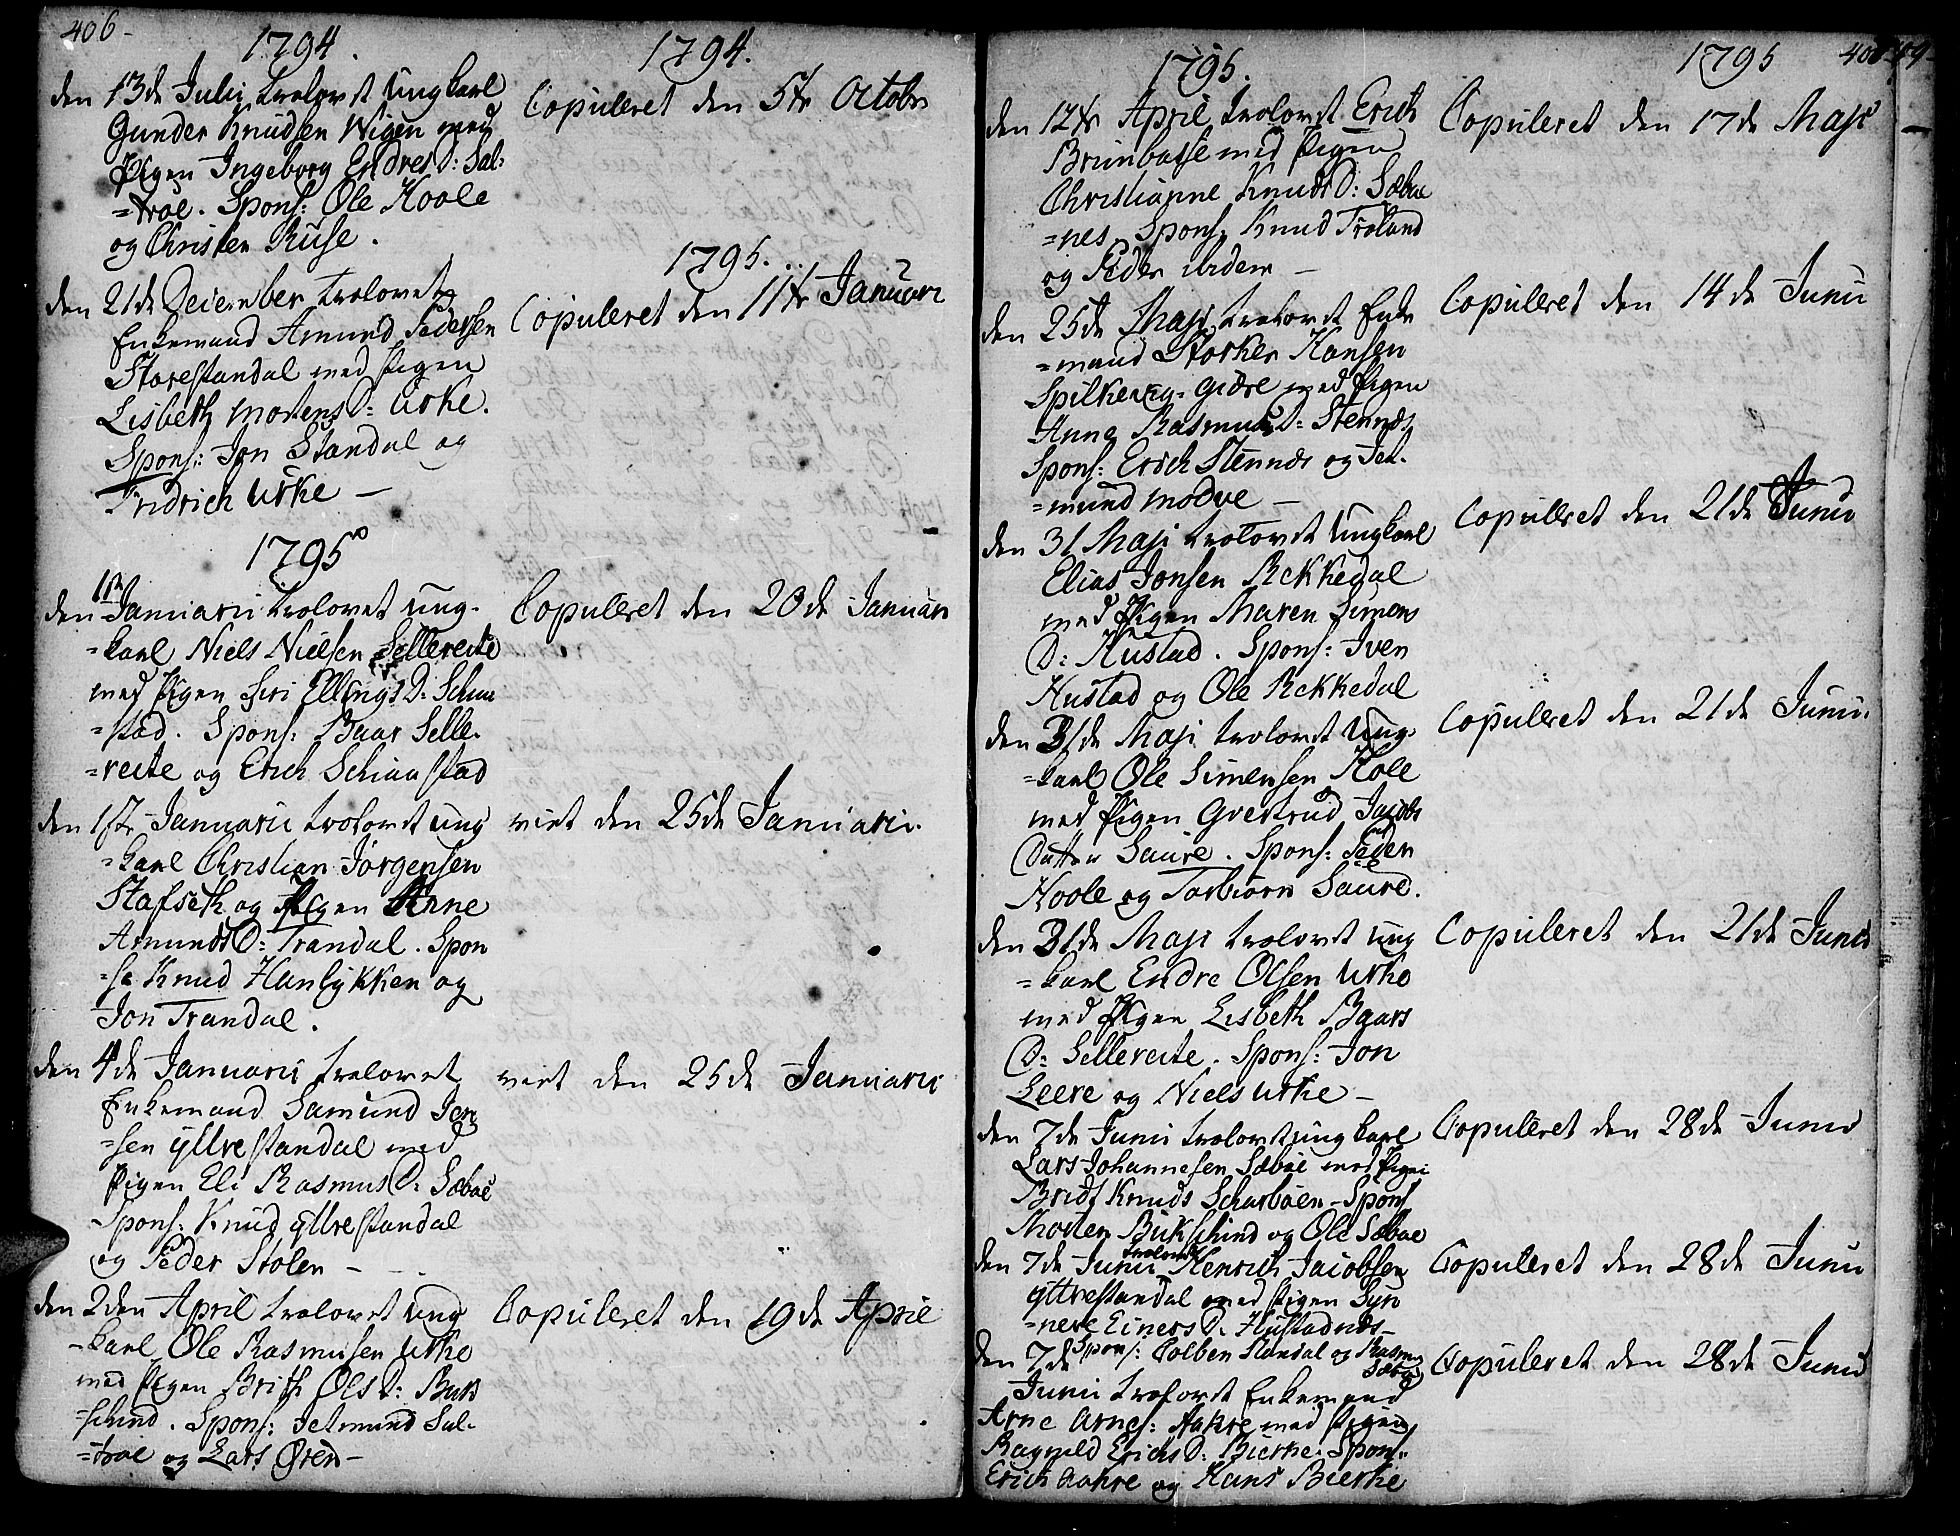 406-
1794.
den 13de Julii trolovet Ungkarl
Gunder Knudsen Wigen med
Pigen Ingeborg EndresD: Sæl-
=troe. Spons: Ole Hoole
og Christen Ruse.
den 21de Deiember trolovet
Enkemand Amund Pedersen
Storestandal med Pigen
Lisbeth MortensD: Urke.
Spons: Jon Standal og
Fridrich Urke —
1795
den 1ste Januarii trolovet ung-
=karl Niels Nielsen Sellereite
med Pigen Siri EllingsD: Schua
=stad. Spons: Baar Selle-
=reite og Erich Schuastad
den 1ste Januarii trolovet ung
=karl Christian Jørgensen
Stafseth og Pigen Anne
AmundsD: Trandal. Spon
=se Knud Hanlykken og
Jon Trandal.
den 4de Januarii trolovet
Enkemand Samund Jon
=sen Yttrestandal med
Pigen Eli RasmusD: Sæboe
Spons: Knud Yttrestandal
og Peder Stolen —
den 2den April trolovet Ung
=karl Ole Rasmusen Urke
med Pigen Brith OlsD: Buk
=schind. Spons: Jetmund Sæl-
=troe og Lars Øren —
1794.
Copuleret den 5te Octobr
1795.
Copuleret den 11te Januari
Copuleret den 20de Januari
viet den 25de Januarii.
viet den 25de Januarii
Copuleret den 19de April
1795.
den 12te April trolovet Erich
Brunbasse med Pigen
Christianne KnudsD: Sæboe
=nes. Spons: Knud Troland
og Peder ibidem —
den 25de Maji trolovet Enke
=mand Storker Hansen
Spilkevig-Giære med Pigen
Anne RasmusD: Stennes
Spons: Erich Stennes og Jet-
=mund Modve —
den 31 Maji trolovet Ungkarl
Elias Jonsen Rekkedal
med Pigen Maren Simens
D: Hustad. Spons: Iver
Hustad og Ole Rekkedal
den 31de Maji trolovet Ung-
=karl Ole Simensen Hole
med Pigen Gvertrud Jacobs
Datter Saure. Spons: Peder
Hoole og Torbiørn Saure.
den 31de Maji trolovet ung
=karl Endre Olsen Urke
med Pigen Lisbeth Baars
D: Sellereite. Spons: Jon
Leere og Niels Urke —
den 7de Junii trolovet ungkarl
Lars Johannesen Sæboe med Pigen
Bridt Knuds Scharbøen - Spons
Morten Bukschind og Ole Sæboe
den 7de Junii trolovet Henrich Jacobsen
Yttrestandal med Pigen Syn
=neve EinersD. Hustadnes —
Spons: Colben Standal og Rasmus
Sæboe
den 7de
Junii trolovet Enkemand
Arne Arnes: Aakre med Pigen
Ragnild ErichsD: Bierke. Spons:
Erich Aakre og Hans Bierke
1795
Copuleret den 17de Maji
Copuleret den 14de Junii
Copulleret den 21de Junii
Copuleret den 21de Junii.
Copuleret den 21de Junii
Copuleret den 28de Junii
Copuleret den 28de Junii
Copuleret den 28de Junii